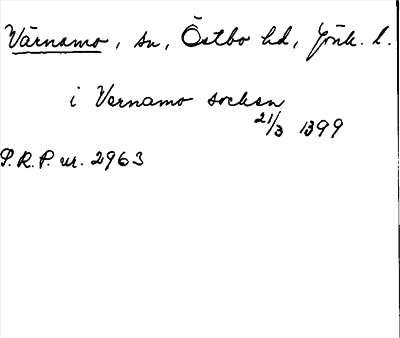 Värnamo, sn, Östbo hd, Jönk. l.
i Vernamo socken
21/3 1399
P.R.P. nr. 2963